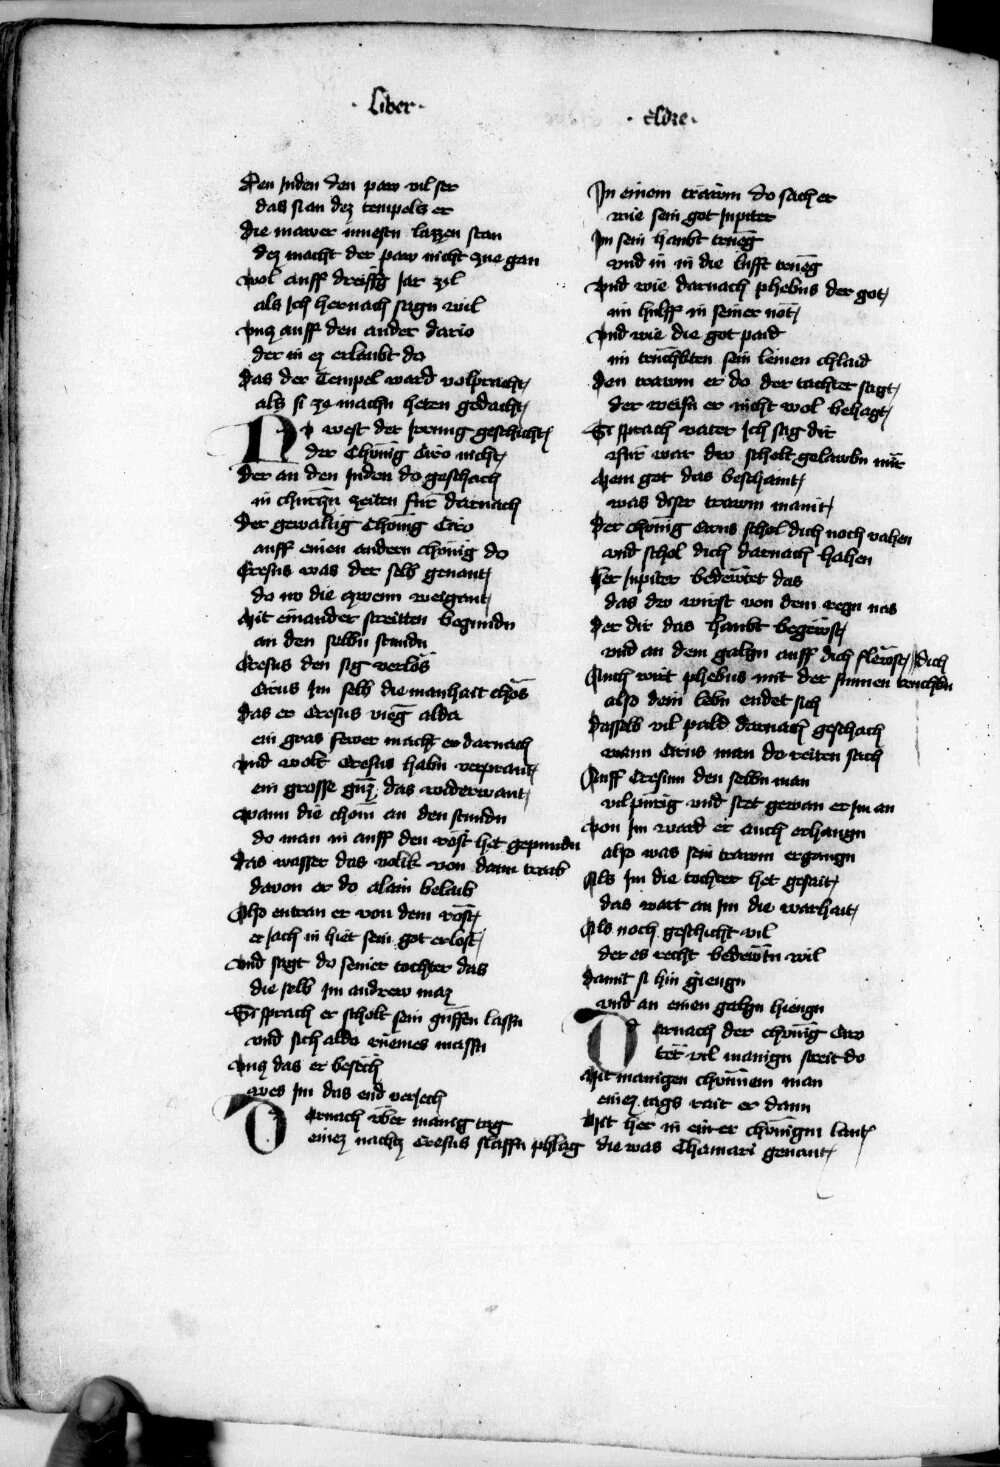 · Liber ·
· Esdre ·
Den Juden den paw vil ser
das si an dez tempels er
die mawer muesten lazzen stan
dez macht der paw nicht zue gan
wol auff dreissig Jar zil
als Ich hernach sagn wil
vnz auff den ander dario
der in ez erlaubt do
Das der Tempel ward volpracht
als si ze machn heten gedacht
Nv west der irrung geschicht
der Chönig Ciro nicht
der an den Juden do geschach
in churczn zeiten fur darnach
Der gewaltig Chönig Ciro
auff einen andern chönig do
Cresus was der selb genant
do nv die zwenn weigant
Mit einander streitten begundn
an den selbn stundn
Cresus den sig verlos
Cirus Im selb die manhait chos
das er Cresus vieg alda
ein gras fewer macht er darnach
vnd wolt Cresus habn verprant
ein grosse guz das widerwant
wann die chom an den stundn
do man in auff den röst het gepundn
das wasser das volik von dann traib
davon er do alain belaib
Also entran er von dem röst
er Jach in hiet sein got erlost
vnd sagt do seiner tochter das
die selb Im andrew maz
Si sprach er scholt sein guffen lassn
vnd sich aldo massn
vnz das er besech
wes Im das end verJech
Darnach vber manig tag
einez nachtz Cresus slaffn phlag
In einem trawm do sach er
wie sein got Jupiter
Im sein haubt trueg
vnd in in die lufft trueg
vnd wie darnach phebus der got
im hulff in seiner not
vnd wie die got paid
im truchkten sein leinen chlaid
Den trawm er do der tachter sagt
der weisn er nicht wol behagt
Si sprach vater Ich sag dir
fur war dw scholt gelawbn mir
wem got das beschaint
was diser trawm maint
Der chönig Cirus schol dich noch vahen
vnd schol dich darnach hahen
her Jupiter bedewtet das
das dw wirst von dem regn nas
der dir das haubt begewst
vnd an dem galgn auff dich flewst
Auch wirt phebus mit der sunnen truchkn dich
also dein lebn endet sich
dasselb vil pald darnach geschach
wann Cirus man do reiten sach
Auff Cresum den selbn man
vil purig vnd stet gewan er Im an
von Im ward er auch erhangn
also was sein trawm ergangn
Als Im die tochter het gesait
das wart an Im die warhait
Als noch geschicht vil
der es recht bedewtn wil
damit si hin giengn
vnd an einen galgn hiengn
Darnach der chönig Ciro
tet vil manign streit do
Mit manigen chönnem man
einez tags rait er dann
Mit her in einer chönigin lant
die was Thamari genant